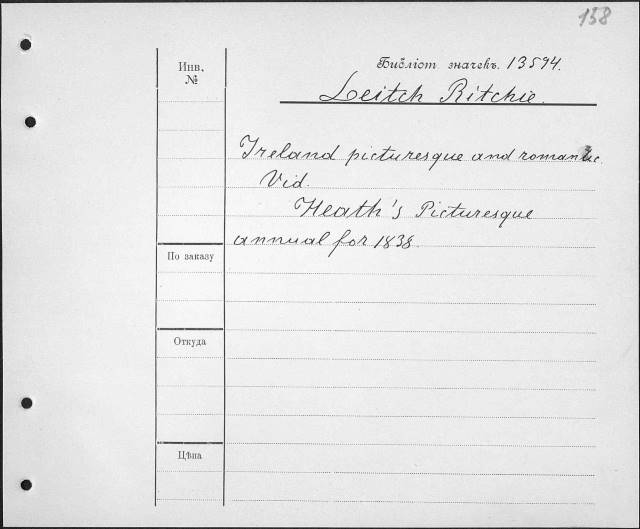 138
Библіот. значекъ. 13594.
Инв.
№
Leitch Ritchie.
Ireland picturesque and romantic
Vid.
Heath's Picturesque
annual for 1838.
По заказу
Откуда
Цѣна